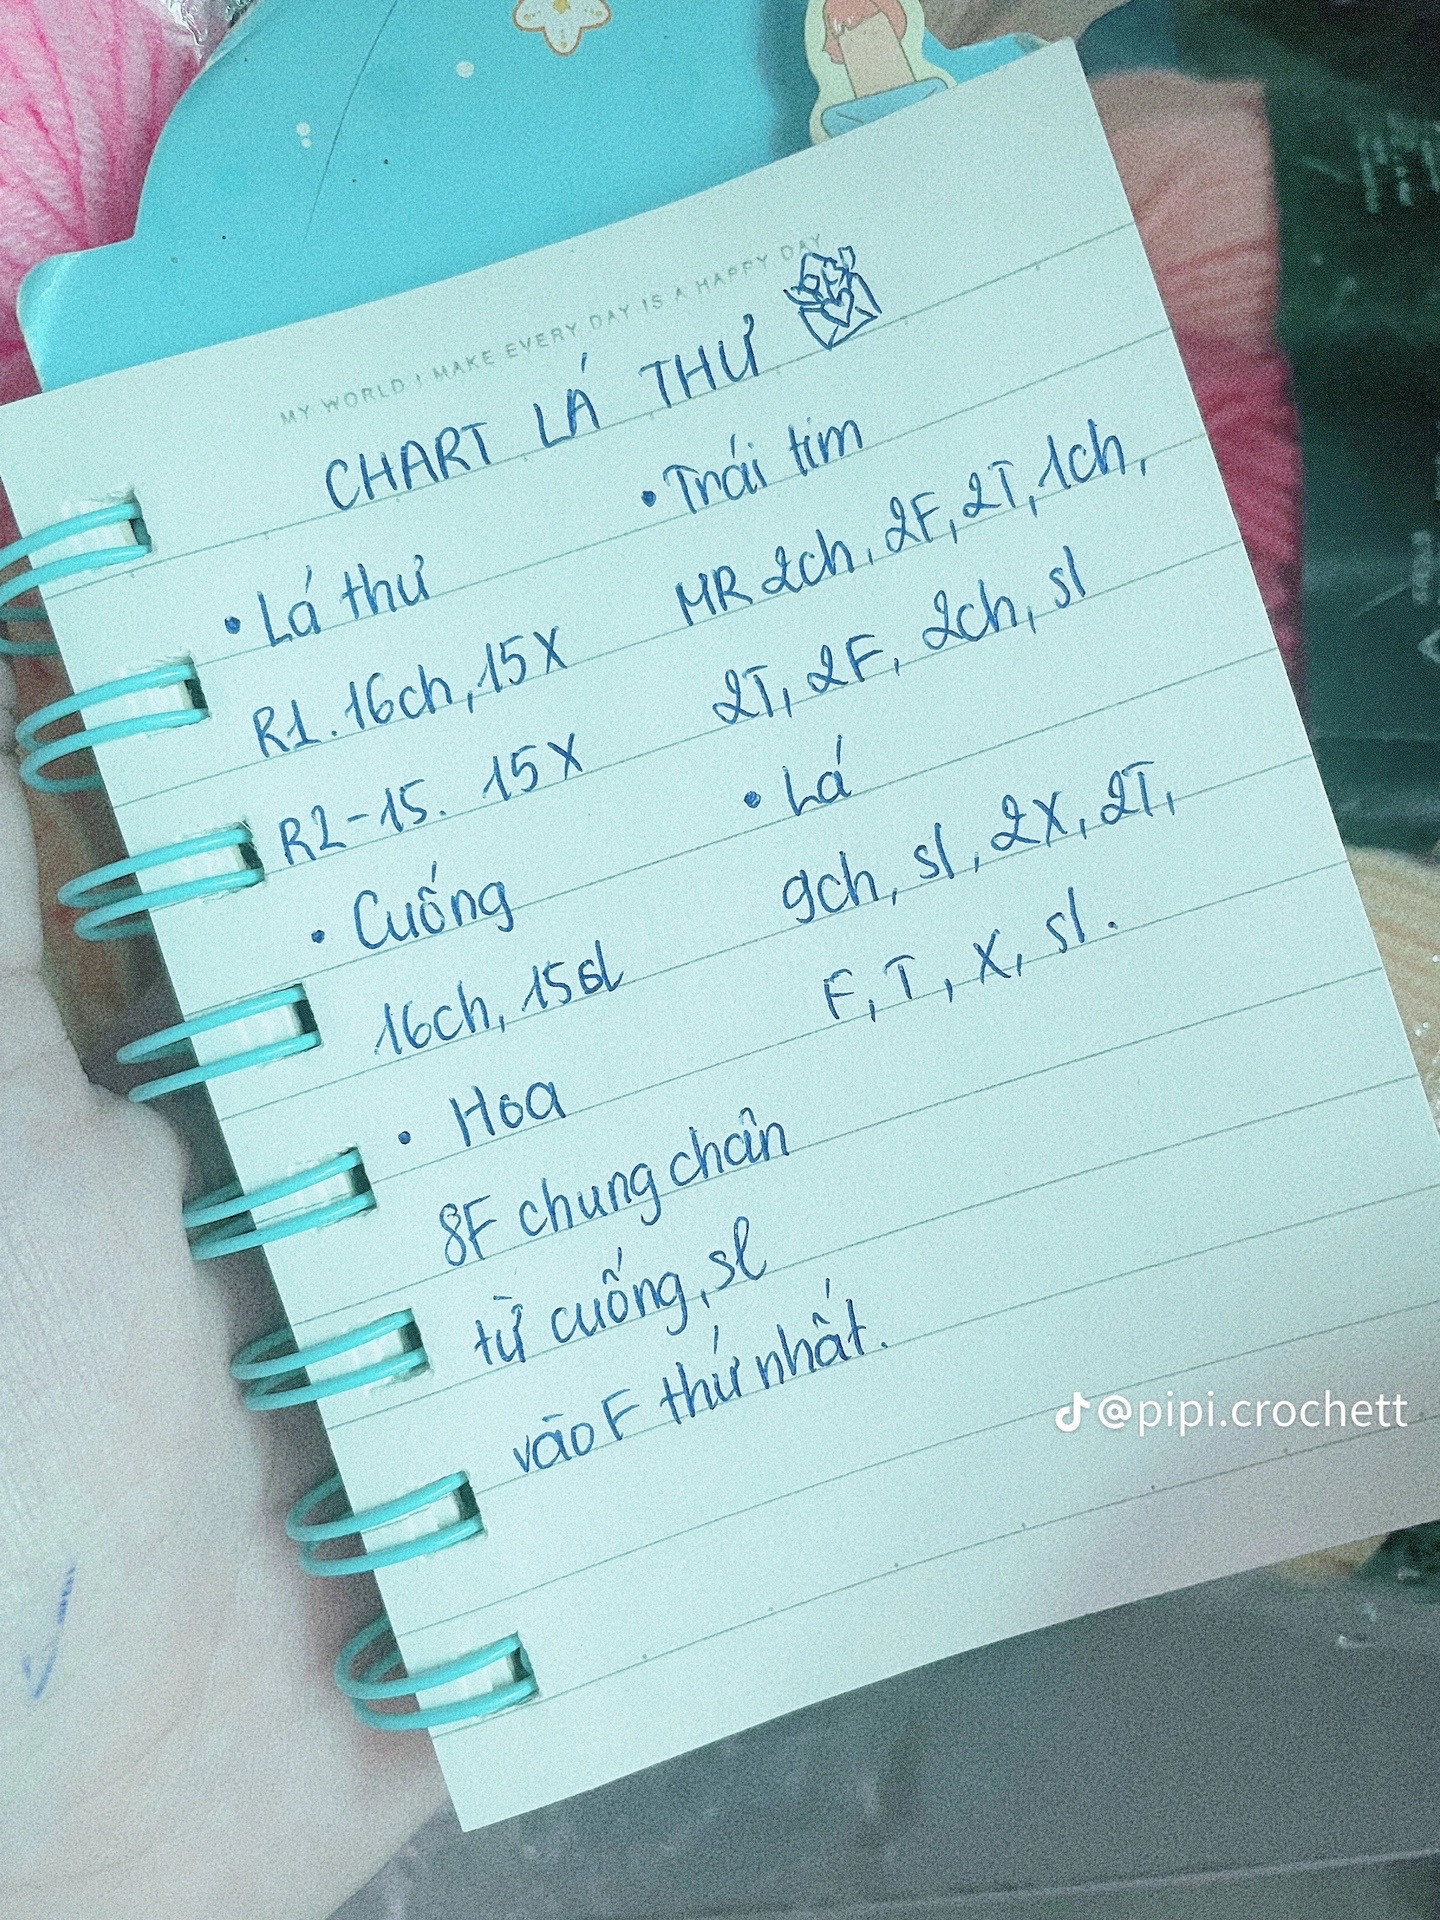 MY WORLD I MAKE EVERY DAY IS A HAPPY DAY
CHART LÁ THƯ
• Lá thư
R1. 16ch, 15X
R2-15. 15X
• Cuống
16ch, 15sl
• Hoa
8F chung chân
từ cuống, sl
vào F thứ nhất.
• Trái tim
MR 2ch, 2F, 2T, 1ch,
2T, 2F, 2ch, sl
• Lá
9ch, sl, 2X, 2T,
F, T, X, sl.
@pipi.crochett